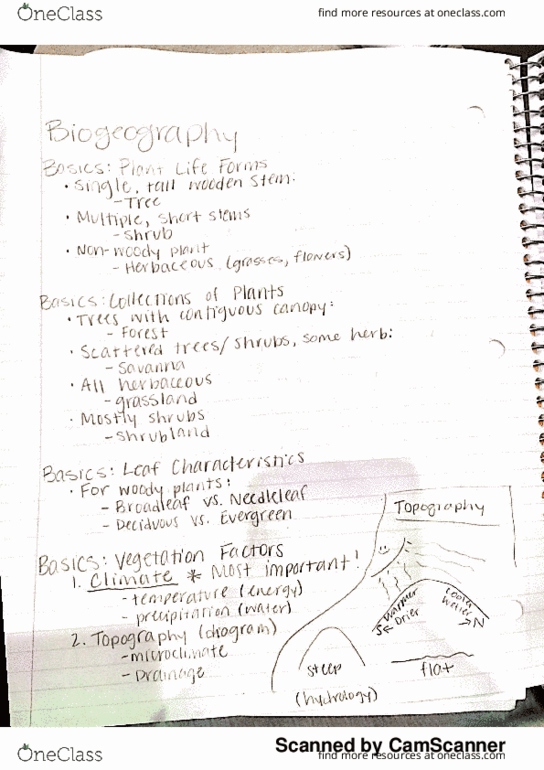 OneClass
find more resources at oneclass.com
Biogeography
Basics: Plant Life Forms
• Single, tall wooden stem:
- Tree
• Multiple, short stems
- shrub
• Non-woody plant
- Herbaceous (grasses, flowers)
Basics: Collections of Plants
• Trees with contiguous canopy:
- Forest
• Scattered trees/shrubs, some herb:
- Savanna
• All herbaceous
- grassland
• Mostly shrubs
- shrubland
Basics: Leaf Characteristics
• For woody plants:
- Broadleaf vs. Needleleaf
- Deciduous vs. Evergreen
Basics: Vegetation Factors
1. Climate * Most important!
- temperature (energy)
- precipitation (water)
2. Topography (diagram)
- microclimate
- Drainage
Topography
Warmer
Drier
S
Cooler
Wetter
N
steep
flat
(hydrology)
OneClass
Scanned by CamScanner
find more resources at oneclass.com